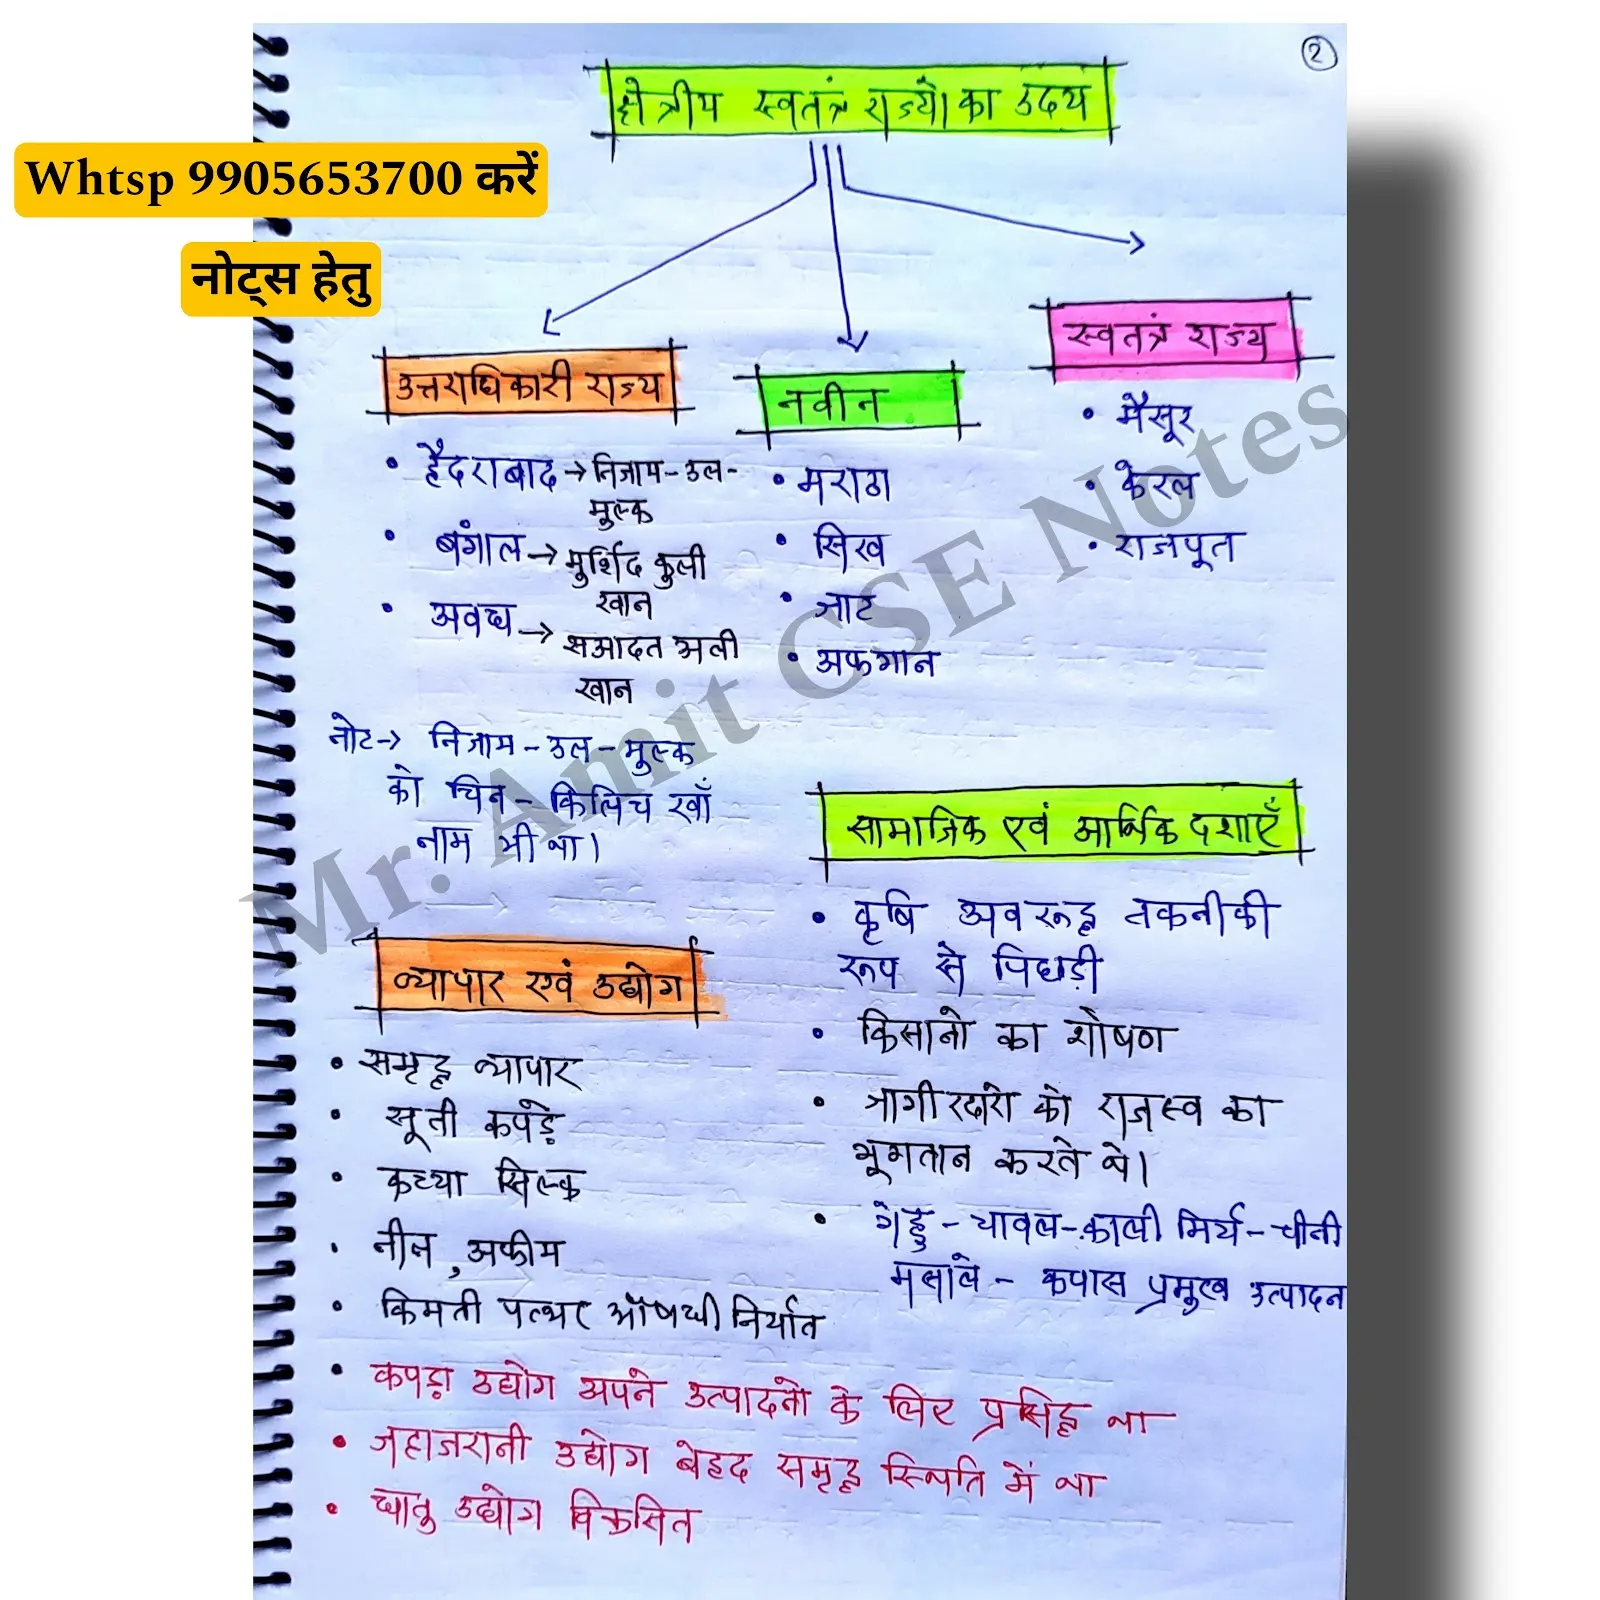 2
क्षेत्रीय स्वतंत्र राज्यों का उदय
Whtsp 9905653700 करें
नोट्स हेतु
उत्तराधिकारी राज्य
• हैदराबाद → निजाम-उल-
मुल्क
• बंगाल → मुर्शिद कुली
खान
• अवध → सआदत अली
खान
नोट→ निजाम-उल-मुल्क
को चिन-किलिच खाँ
नाम भी था।
नवीन
• मराठा
• सिख
• जाट
• अफगान
स्वतंत्र राज्य
• मैसूर
• केरल
• राजपूत
Mr. Amit CSE Notes
सामाजिक एवं आर्थिक दशाएँ
• कृषि अवरूद्ध तकनीकी
रूप से पिछड़ी
• किसानो का शोषण
• जागीरदारो को राजस्व का
भूगतान करते थे।
• गेहु - चावल-काली मिर्च-चीनी
मसाले - कपास प्रमुख उत्पादन
व्यापार एवं उद्योग
• समृद्ध व्यापार
• सूती कपड़े
• कच्चा सिल्क
• नील, अफीम
• किमती पत्थर औषधी निर्यात
• कपड़ा उद्योग अपने उत्पादनो के लिए प्रसिद्ध था
• जहाजरानी उद्योग बेहद समृद्ध स्थिति में था
• धातु उद्योग विकसित